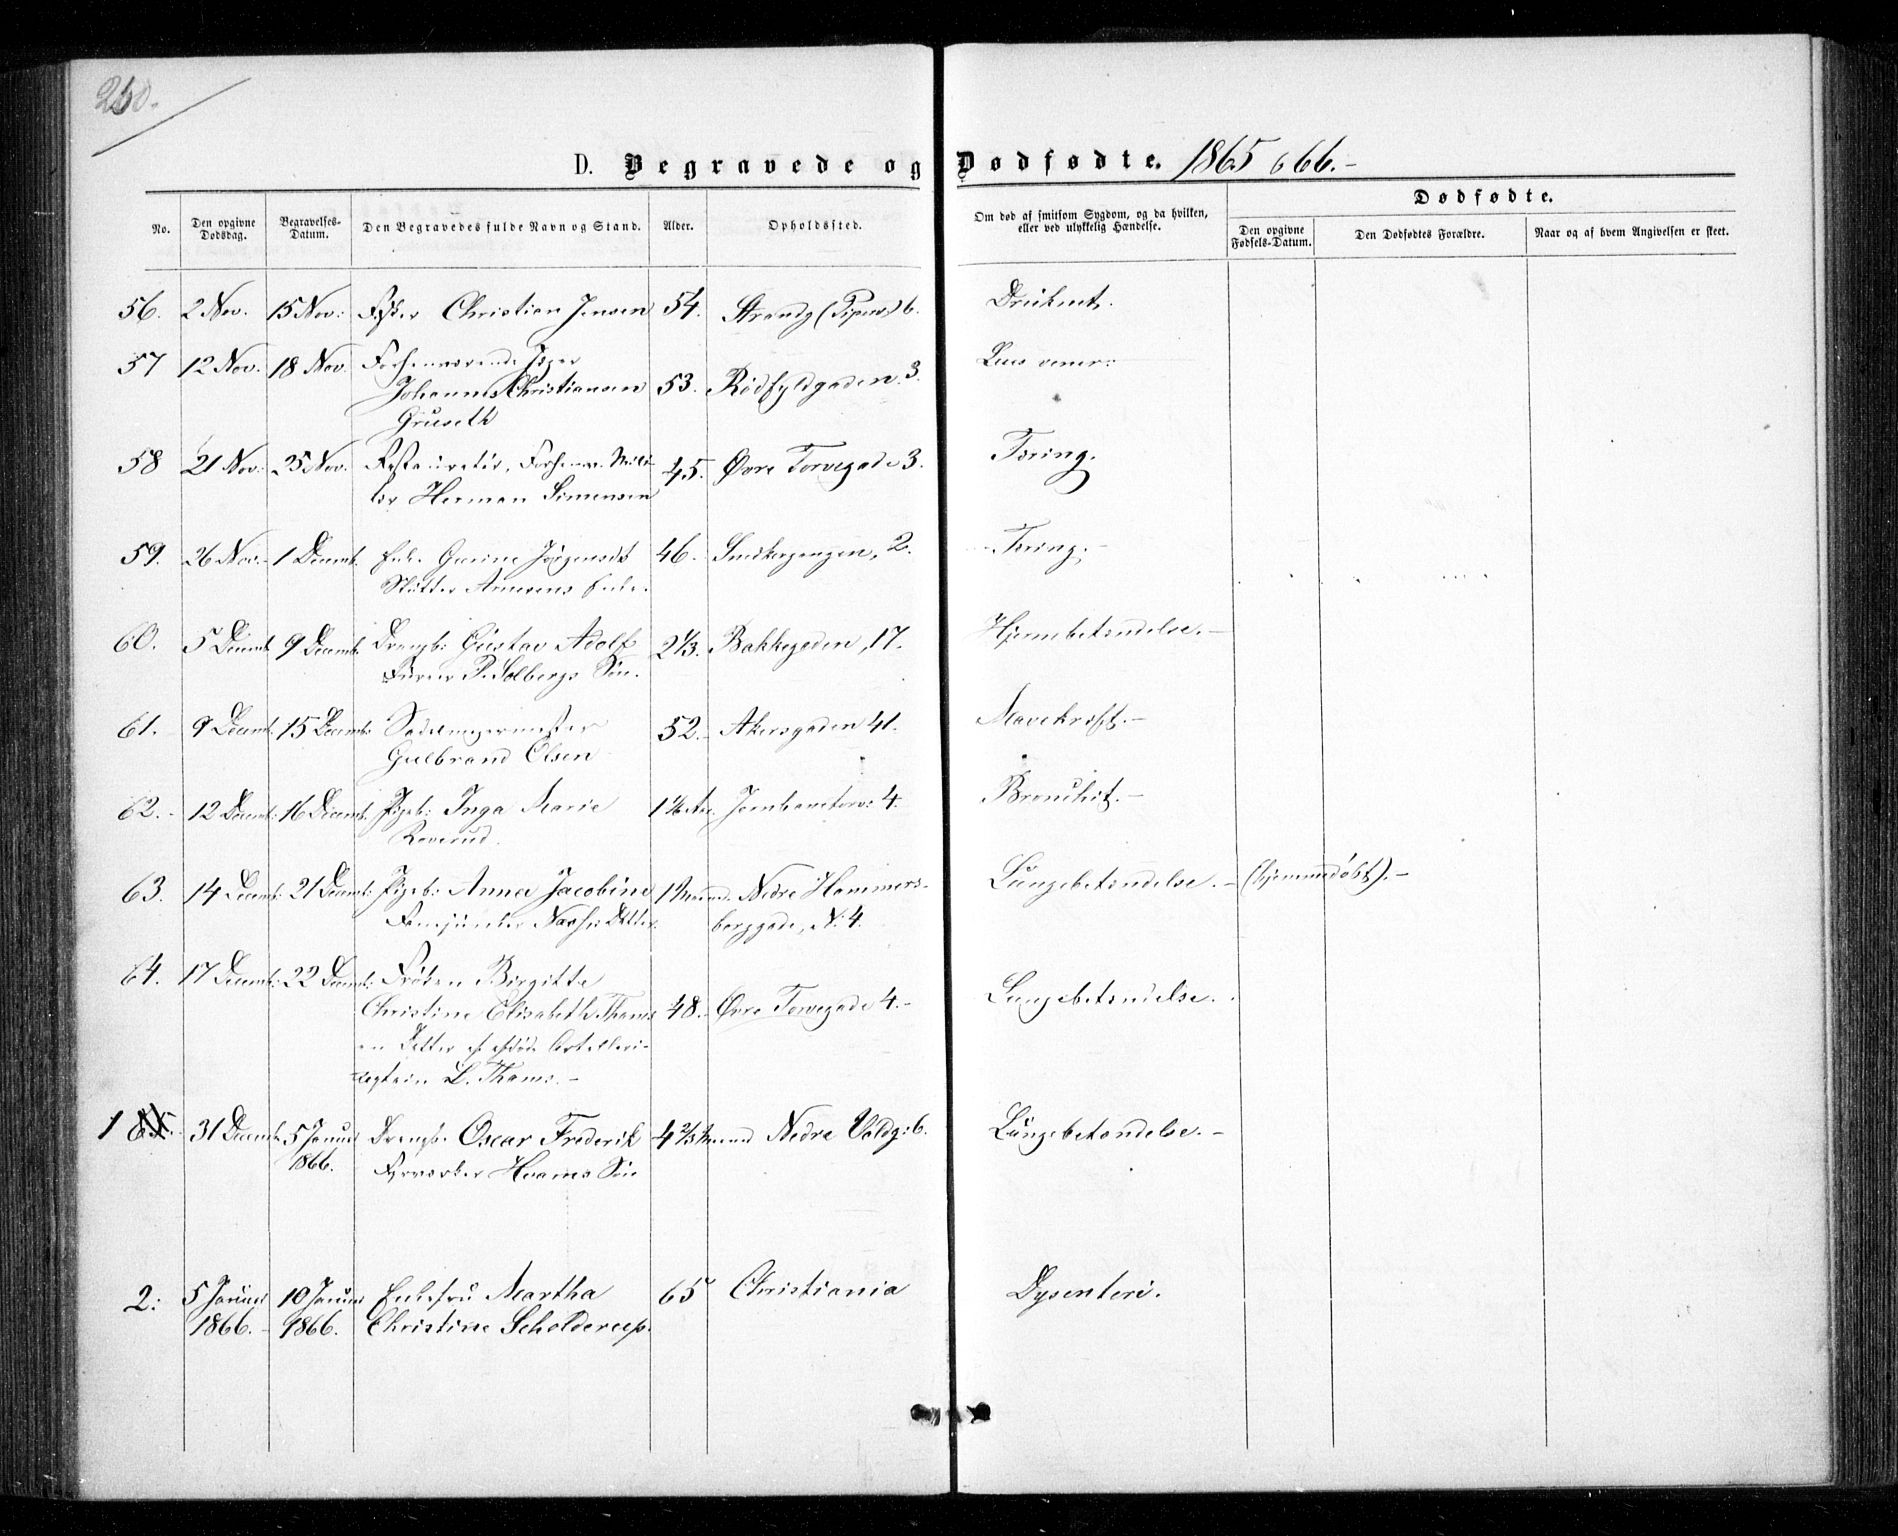 260.
D. Begravede og Dødfødte. 1865 o 66.-
Dødfødte.
No. Den opgivne Dødsdag. Begravelses-Datum. Den Begravedes fulde Navn og Stand. Alder. Opholdssted. Om død af smitsom Sygdom, og da hvilken, eller ved ulykkelig Hændelse. Den opgivne Fødsels-Datum. Den Dødfødtes Forældre. Naar og af hvem Angivelsen er skeet.
56. 2 Nov. 15 Nov: Christian Jensen 54. Strandg (Piperv) 6. Drukent.
57 12 Nov. 18 Nov. Forhenværende Jæger
Johannes Christiansen 53. Rødfyldgaden 3. Lues vener:
Gruseth
58 21 Nov: 25 Nov. Restauratør, Forhenv. Mili-
tær Herman Simensen 45. Øvre Torvegade 3. Tæring.
59. 26 Nov. 1 Decemb. Enke Gurine Jørgensdt 46. Smedkergangen, 2. Tæring.-
Enke.
60. 5 Decemb. 9 Decemb. Drengb: Gustav Adolf 2 1/3. Bakkegaden, 17. Hjernebetændelse.-
Furer P. Solbergs Søn.
61. 9 Decemb. 15 Decemb: Sadelmagermester 52. Akersgaden 41. Mavekræft.-
Gulbrand Olsen
62.- 12 Decemb: 16 Decemb. Pigeb: Inga Marie Jernbanetorv: 4. Bronchit.-
Roverud.
63. 14 Decemb: 21 Decemb: Pigeb: Anna Jacobine Nedre Hammers- Lungebetændelse.- (hjemmedøbt).-
Fanejunker Næss: Datter. berggade, N. 4.
64. 17 Decemb: 22 Decemb: Frøken Birgitte
Christine Elisabeth Thams 48. Øvre Torvegade 4.- Lungebetændelse.
en Datter af afdøde Artilleri-
captein L. Thams.-
1 65. 31 Decemb. 5 Januar 1866. Drengb. Oscar Frederik 4 2/3 Maaned Nedre Voldg: 6. Lungebetændelse.-
Fyrværker Hvams Søn
2: 5 Januar 1866.- 10 Januar 1866. Enkefru Martha 65 Christiania Dysenteri.
Christine Scholderup.